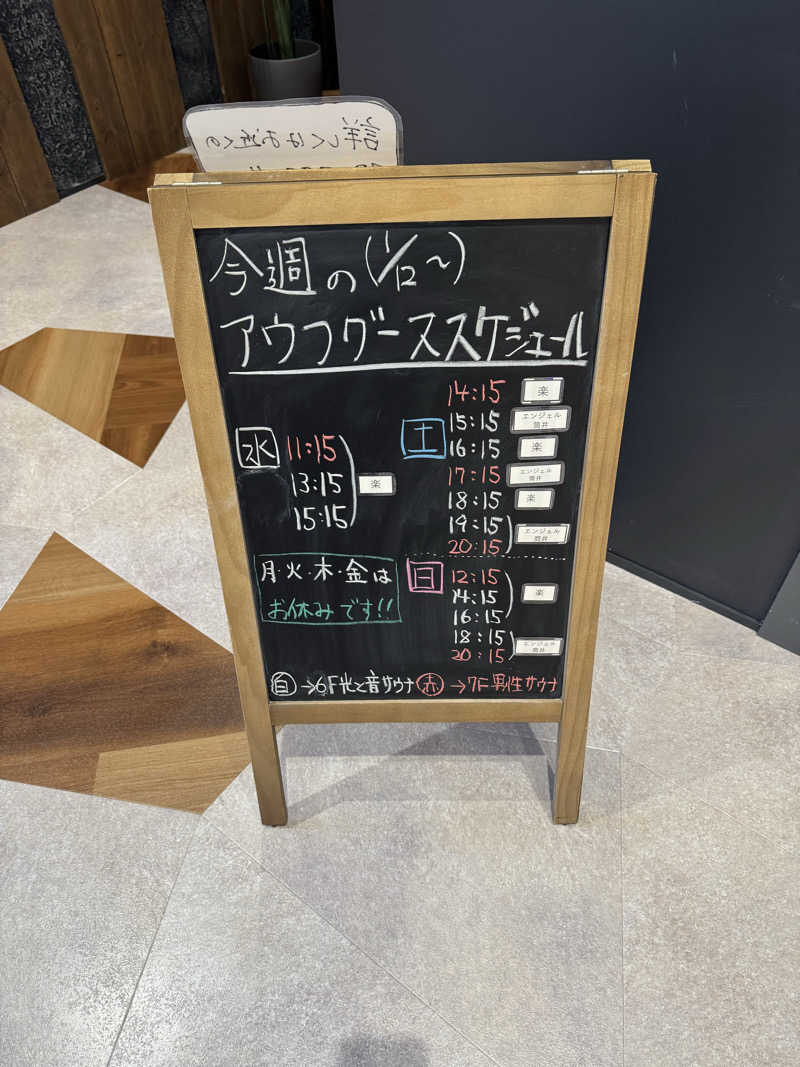 詳しくはお近くの
今週の(1/12~)
アウフグーススケジュール
水 11:15
13:15 楽
15:15
月・火・木・金は
お休みです!!
土 14:15 楽
15:15 エンジェル筒井
16:15 楽
17:15 エンジェル筒井
18:15 楽
19:15 エンジェル筒井
20:15
日 12:15
14:15 楽
16:15
18:15 エンジェル筒井
20:15
白→6F光と音サウナ 赤→7F男性サウナ